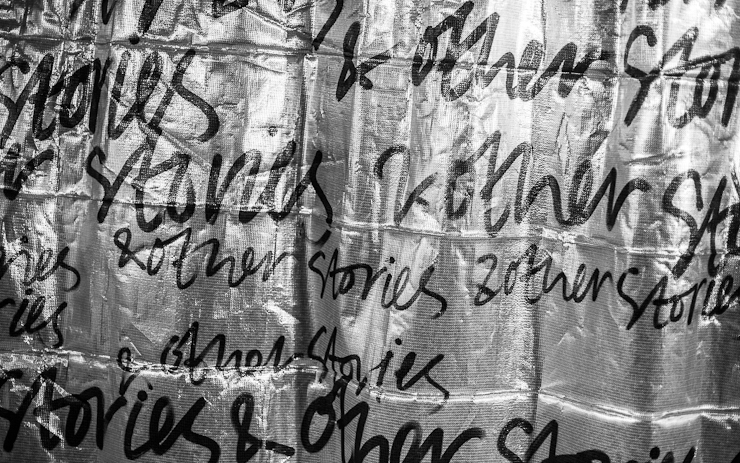 & other stor
stories
& stories & other sto
ries & other stories & other stories
ries & other stories
stories & other stories